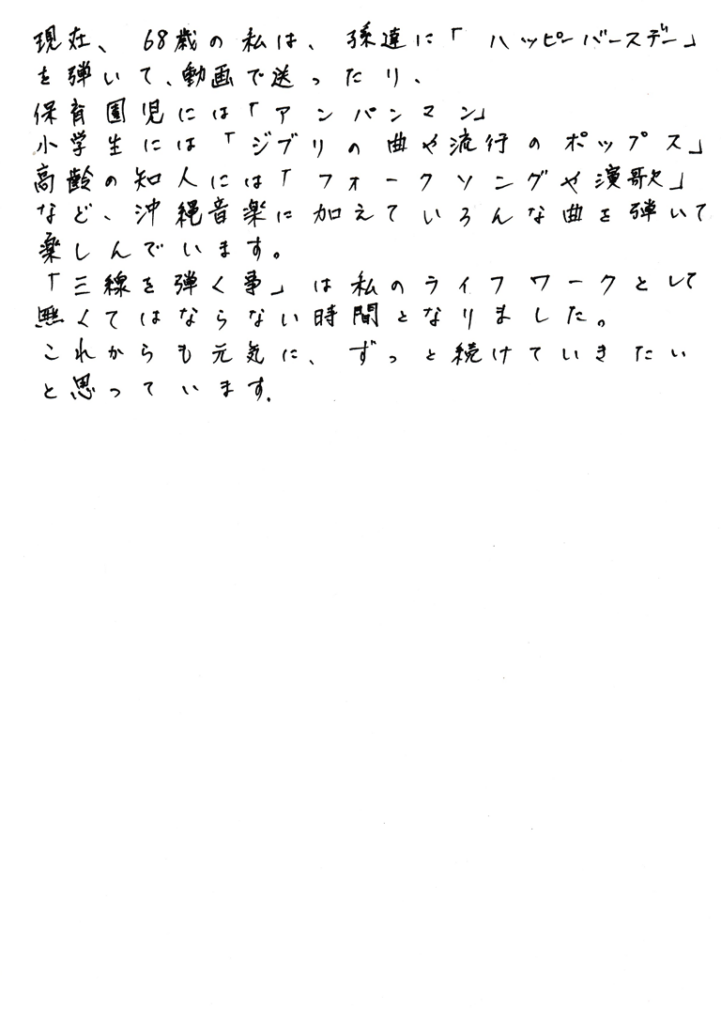 現在、68歳の私は、孫達に「ハッピーバースデー」
を弾いて、動画で送ったり、
保育園児には「アンパンマン」
小学生には「ジブリの曲や流行のポップス」
高齢の知人には「フォークソングや演歌」
など、沖縄音楽に加えていろんな曲を弾いて
楽しんでいます。
「三線を弾く事」は私のライフワークとして
無くてはならない時間となりました。
これからも元気に、ずっと続けていきたい
と思っています。